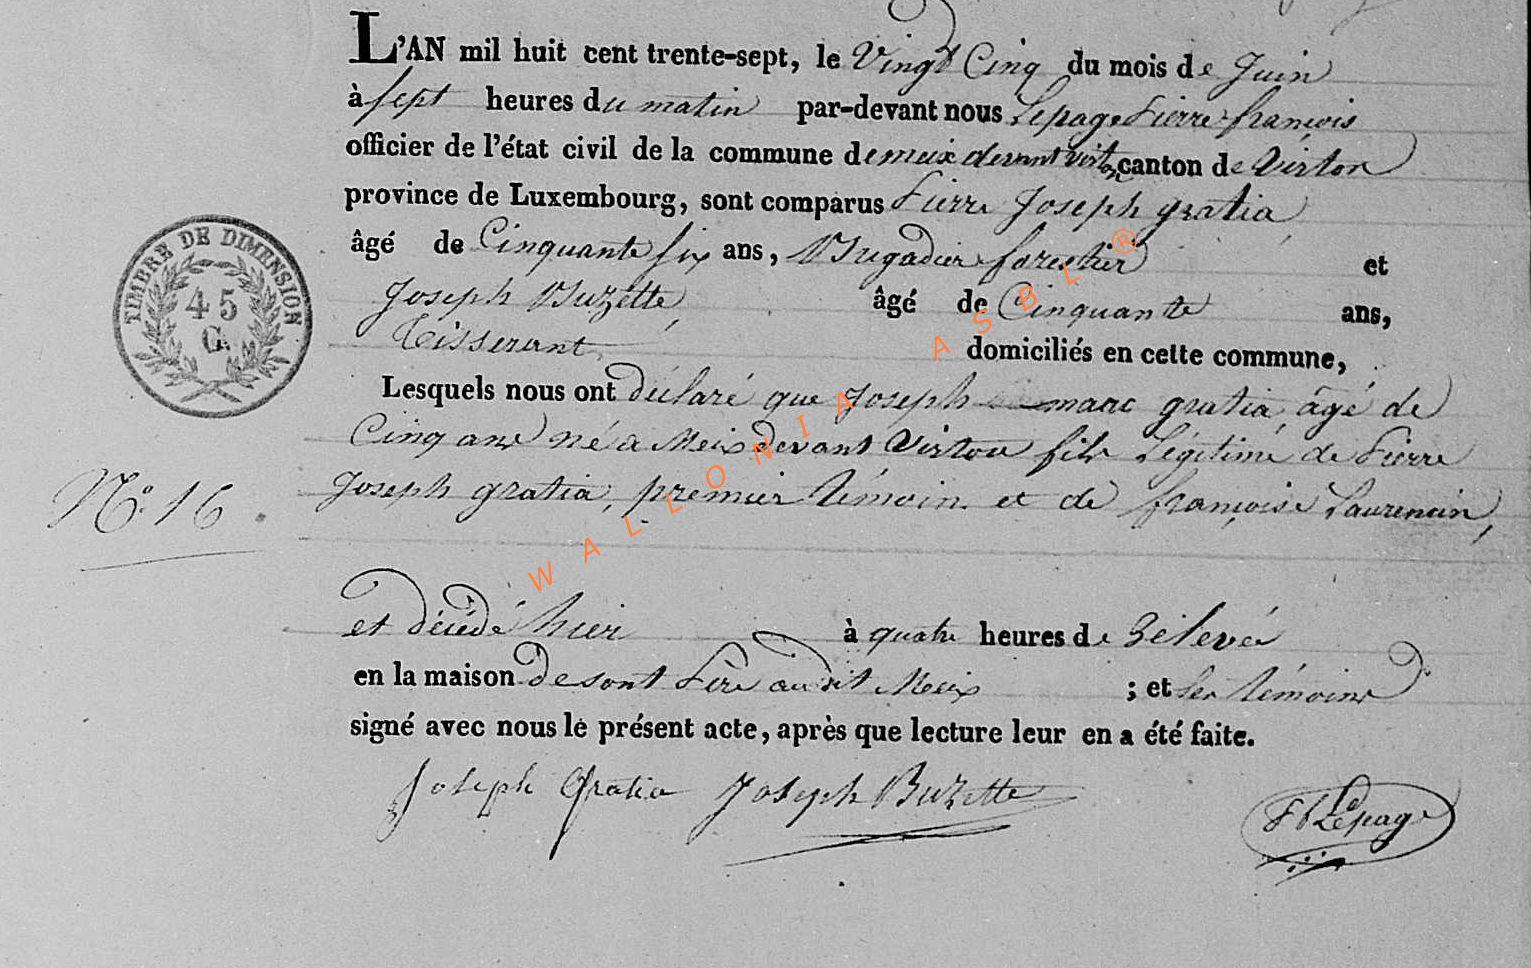 L'AN mil huit cent trente-sept, le Vingt Cinq du mois de Juin
à sept heures du matin par-devant nous Lepage Pierre françois
officier de l'état civil de la commune de meix devant virton canton de Virton
province de Luxembourg, sont comparus Pierre Joseph gratia
âgé de Cinquante six ans, Brigadier forestier et
Joseph Buzette, âgé de Cinquante ans,
Tisserant domiciliés en cette commune,
Lesquels nous ont déclaré que Joseph marc gratia âgé de
Cinq ans né a Meix devant Virton fils Légitime de Pierre
Joseph gratia, premier témoin et de françoise Laurencin,
et décédé hier à quatre heures de relevée
en la maison de sont Père au dit Meix ; et les témoins
signé avec nous le présent acte, après que lecture leur en a été faite.
Joseph Gratia Joseph Buzette Lepage
TIMBRE DE DIMENSION
45
C.
N.º 16
WALLONIA ASBL ®